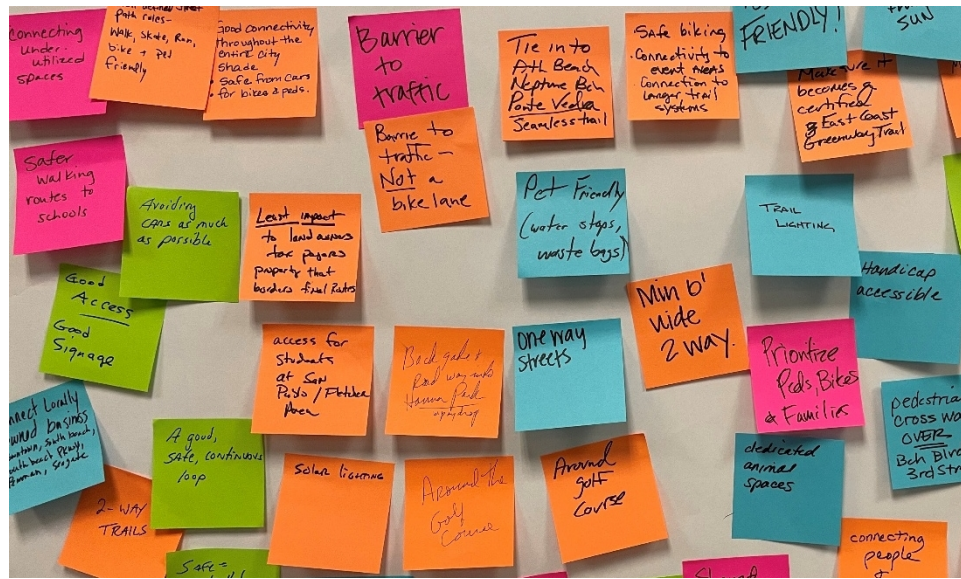 Connecting
Under-
utilized
spaces
path rules-
Walk, Skate, Run,
bike + Ped
friendly
Good connectivity
throughout the
entire city
Shade
Safe from cars
for bikes & peds.
Barrier
to
traffic
Barrie to
traffic -
Not a
bike lane
Tie into
Atl Beach
Neptune Bch
Ponte Vedra
Seamless trail
Safe biking
Connectivity to
event
Connection to
Longer trail
systems
FRIENDLY!
SUN
Make sure it
becomes a
certified
East Coast
Greenway Trail
Safer
walking
routes to
schools
Avoiding
cars as much
as possible
Least impact
to land owners
tax payers
property that
borders final Routes
Pet Friendly
(water stops,
waste bags)
TRAIL
LIGHTING
Handicap
accessible
Good
Access
Good
Signage
access for
students
at San
Pablo / Fletcher
Area
Back gate
Hanna Park
one way
streets
Min 6'
wide
2 way.
Prioritize
Peds, Bikes
& Families
pedestria
cross wa
OVER
Bch Blv
3rd Str
nnect Locally
wned business
south beach,
A good,
safe, continuous
loop
SOLAR LIGHTING
Around the
Golf
Course
Around
golf
course
dedicated
animal
spaces
2-WAY
TRAILS
Safe =
connecting
people
+